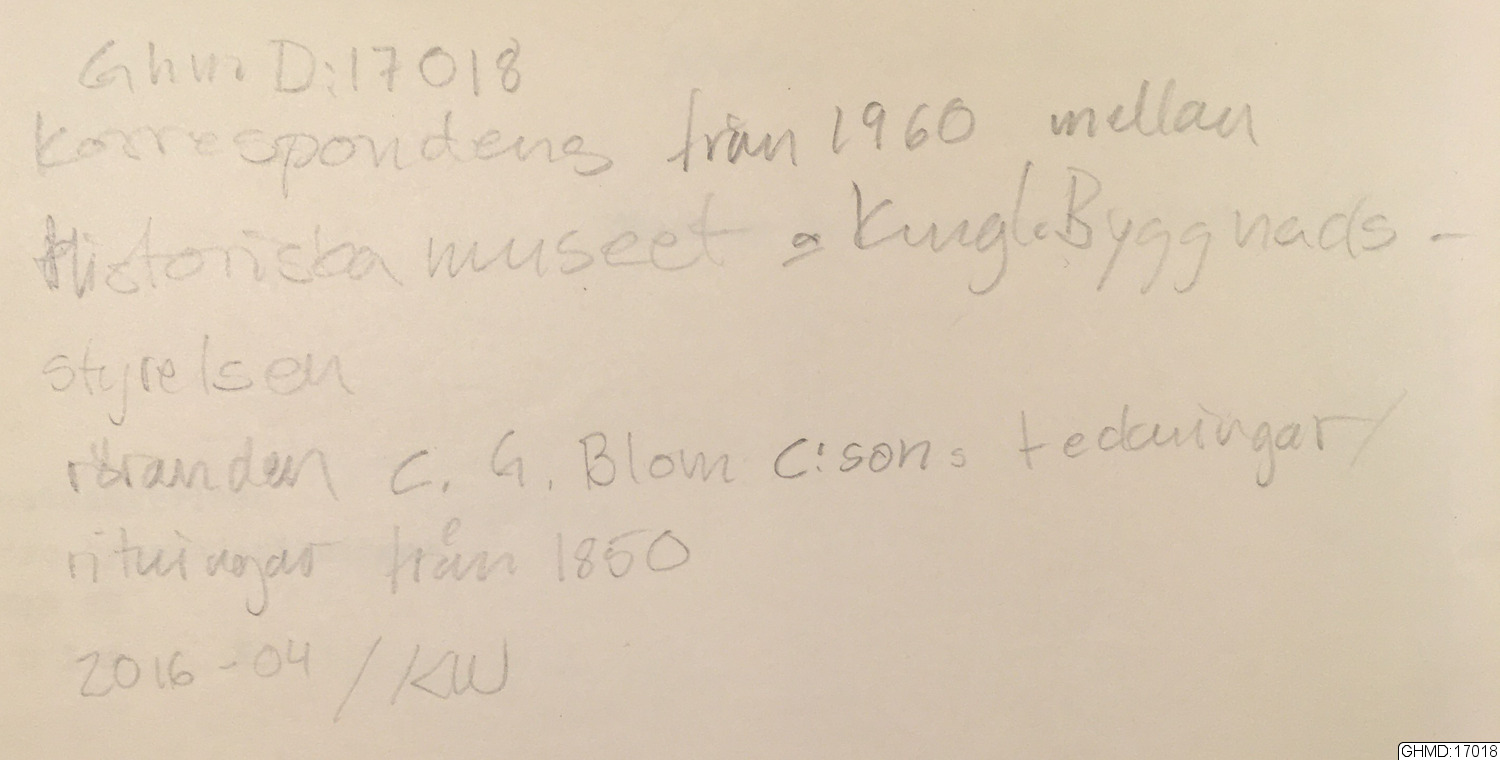 Ghm D:17018
Korrespondens från 1960 mellan
Historiska museet o Kungl. Byggnads-
styrelsen
röranden C. G. Blom C:sons teckningar/
ritningar från 1850
2016-04 / KW
GHMD:17018